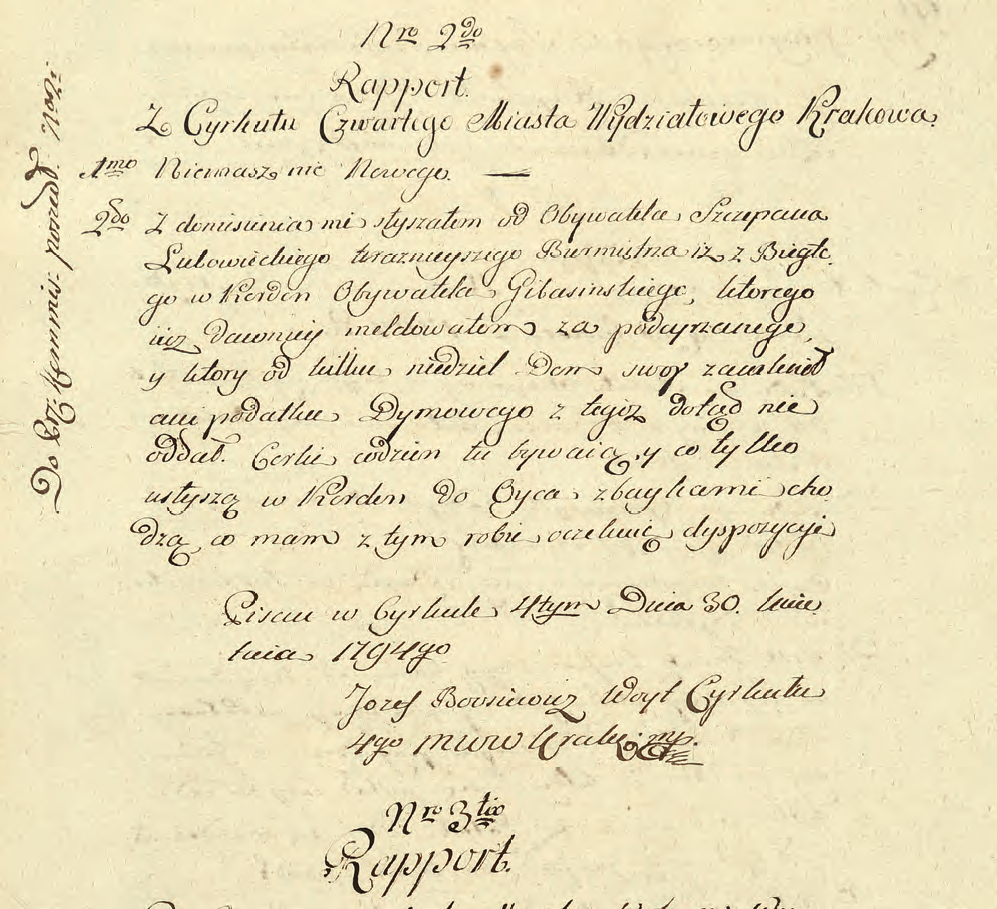 Nro 2do
Rapport.
Z Cyrkułu Czwartego Miasta Wydziałowego Krakowa.
1mo Niemasz nic Nowego. —
2do Z doniesienia mi słyszałem od Obywatela Szczepana
Lubowieckiego teraznieyszego Burmistrza iz z Biegłe
go w Kordon Obywatela Gibasinskiego, ktorego
iuz dawniey meldowałem za podayrzanego,
y ktory od kilku niedziel Dom swoy zamknioł
ani podatku Dymowego z tegoz dotąd nie
oddał. Corki codzien tu bywaią, y co tylko
usłyszą w Kordon do Oyca z baykami cho
dzą, co mam z tym robic oczekuię dyspozycyi
Pisan w Cyrkule 4tym Dnia 30. kwie
tnia 1794go
Jozef Woyt Cyrkułu
4go MWW Krako: mp.
Nro 3tio
Rapport.
Do Prz: Kommis: porząd: